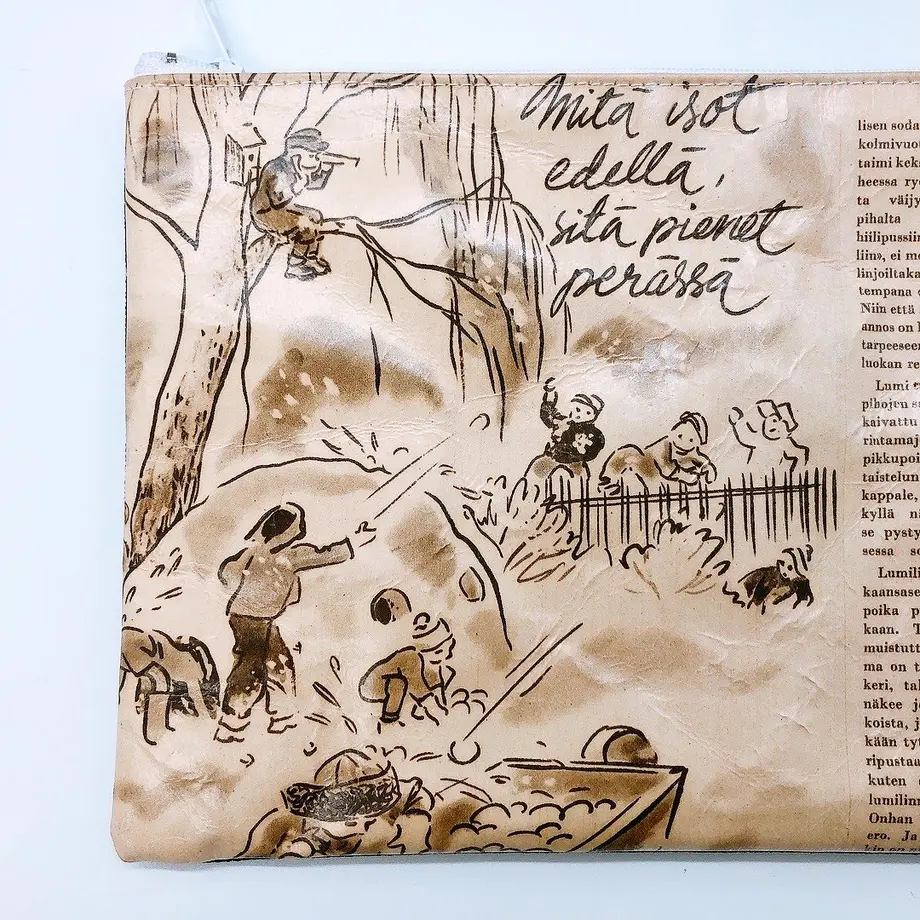 Mitä isot
edellä,
sitä pienet
perässä
lisen soda
kolmivuo
taimi kek
heessa ry
ta väijy
pihalta
hiilipussiin
liin», ei m
linjoiltaka
tempana
Niin että
annos on
tarpeeseen
luokan re
Lumi
pihojen s
kaivattu
rintamaj
pikkupoi
taistelun
kappale,
kyllä n
se pysty
sessa so
Lumili
kaansase
poika p
kaan. T
muistutt
ma on t
keri, tal
näkee j
koista, j
kään tyt
ripustaa
kuten
lumilinn
Onhan
ero. Ja